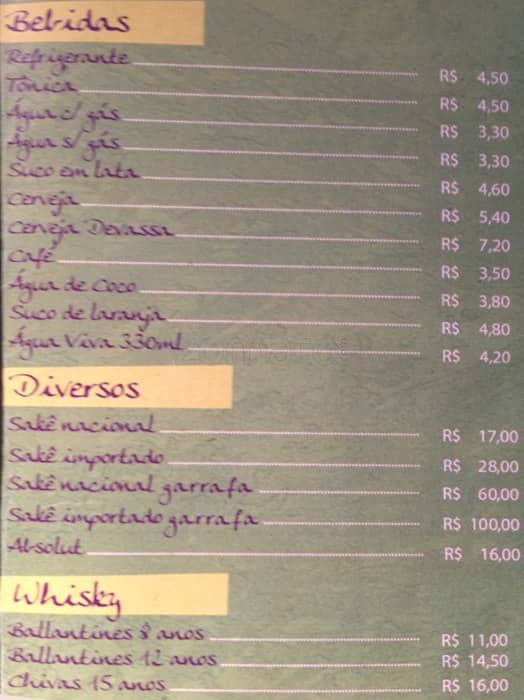 Bebidas
Refrigerante R$ 4,50
Tônica R$ 4,50
Água c/ gás R$ 3,30
Água s/ gás R$ 3,30
Suco em lata R$ 4,60
Cerveja R$ 5,40
Cerveja Devassa R$ 7,20
Café R$ 3,50
Água de Coco R$ 3,80
Suco de laranja R$ 4,80
Água Viva 330ml R$ 4,20
Diversos
Sakê nacional R$ 17,00
Sakê importado R$ 28,00
Sakê nacional garrafa R$ 60,00
Sakê importado garrafa R$ 100,00
Absolut R$ 16,00
Whisky
Ballantines 8 anos R$ 11,00
Ballantines 12 anos R$ 14,50
Chivas 15 anos R$ 16,00